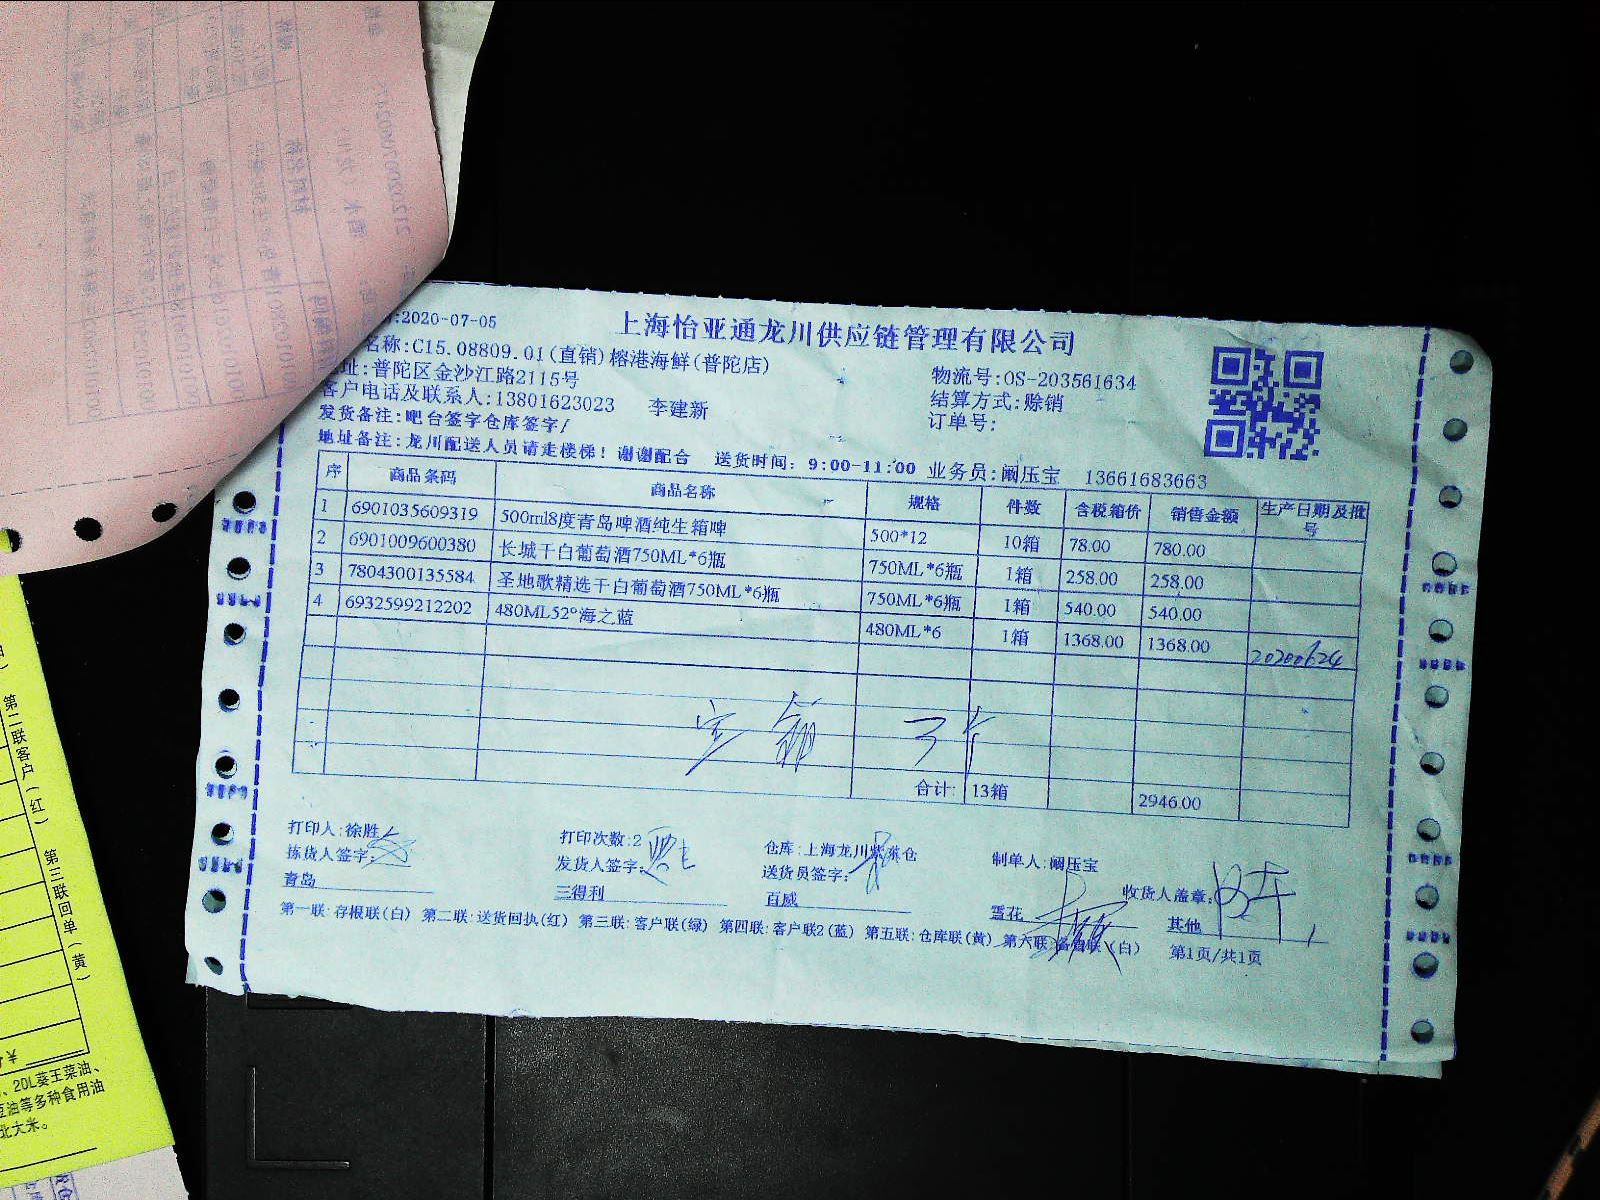 上海怡亚通龙川供应链管理有限公司
:2020-07-05
名称:C15.08809.01(直销)榕港海鲜(普陀店)
址:普陀区金沙江路2115号
客户电话及联系人:13801623023 李建新
发货备注:吧台签字仓库签字/
地址备注:龙川配送人员请走楼梯!谢谢配合 送货时间:9:00-11:00 业务员:阚压宝 13661683663
物流号:OS-203561634
结算方式:赊销
订单号:
序 商品条码 商品名称 规格 件数 含税箱价 销售金额 生产日期及批号
1 6901035609319 500ml8度青岛啤酒纯生箱啤 500*12 10箱 78.00 780.00
2 6901009600380 长城干白葡萄酒750ML*6瓶 750ML*6瓶 1箱 258.00 258.00
3 7804300135584 圣地歌精选干白葡萄酒750ML*6瓶 750ML*6瓶 1箱 540.00 540.00
4 6932599212202 480ML52°海之蓝 480ML*6 1箱 1368.00 1368.00 20200624
合计: 13箱 2946.00
打印人:徐胜 打印次数:2 仓库:上海龙川 仓 制单人:阚压宝
拣货人签字: 发货人签字: 送货员签字: 收货人盖章:
青岛 三得利 百威 雪花 其他
第一联:存根联(白) 第二联:送货回执(红) 第三联:客户联(绿) 第四联:客户联2(蓝) 第五联:仓库联(黄) 第六联: 联(白) 第1页/共1页
第二联客户(红) 第三联回单(黄)
¥
、20L葵王菜油、
豆油等多种食用油
北大米。